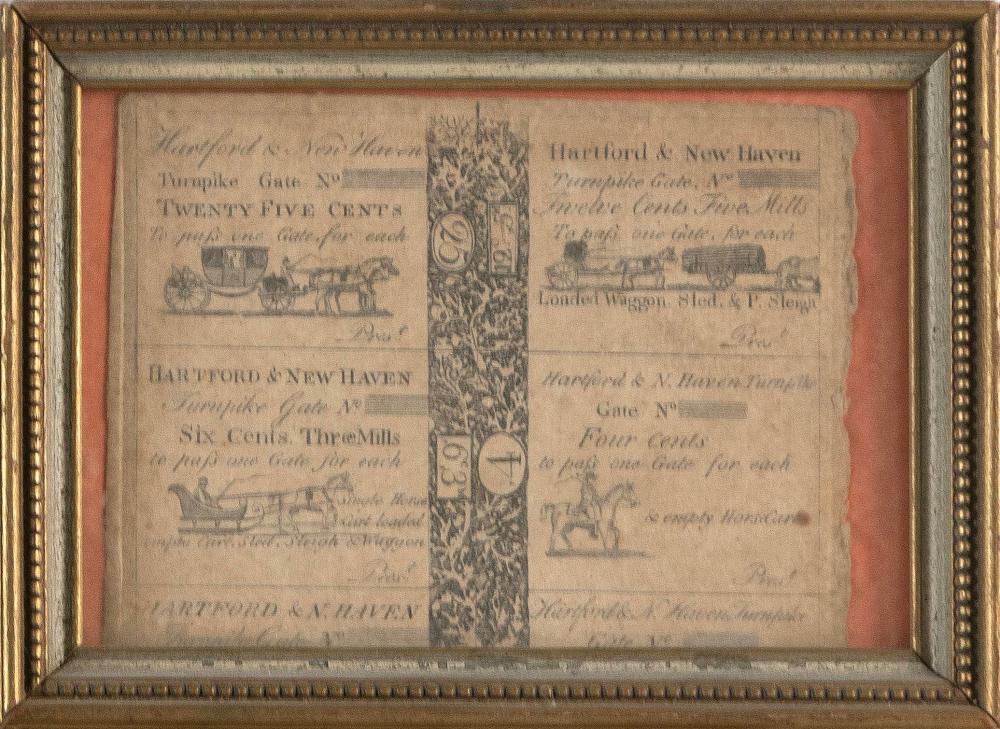 Hartford & New Haven
Turnpike Gate No
TWENTY FIVE CENTS
To paſs one Gate, for each
Prest
25
12 5
Hartford & New Haven
Turnpike Gate, No
Twelve Cents Five Mills
To paſs one Gate, for each
Loaded Waggon, Sled, & P. Sleigh
Prest
HARTFORD & NEW HAVEN
Turnpike Gate No
Six Cents, Three Mills
to paſs one Gate for each
Single Horse
Cart loaded
empty Cart, Sled, Sleigh & Waggon
Prest
63
4
Hartford & N. Haven Turnpike
Gate No
Four Cents
to paſs one Gate for each
& empty Horse Cart
Prest
HARTFORD & N. HAVEN
Turnpike Gate No
Hartford & N. Haven Turnpike
Gate No